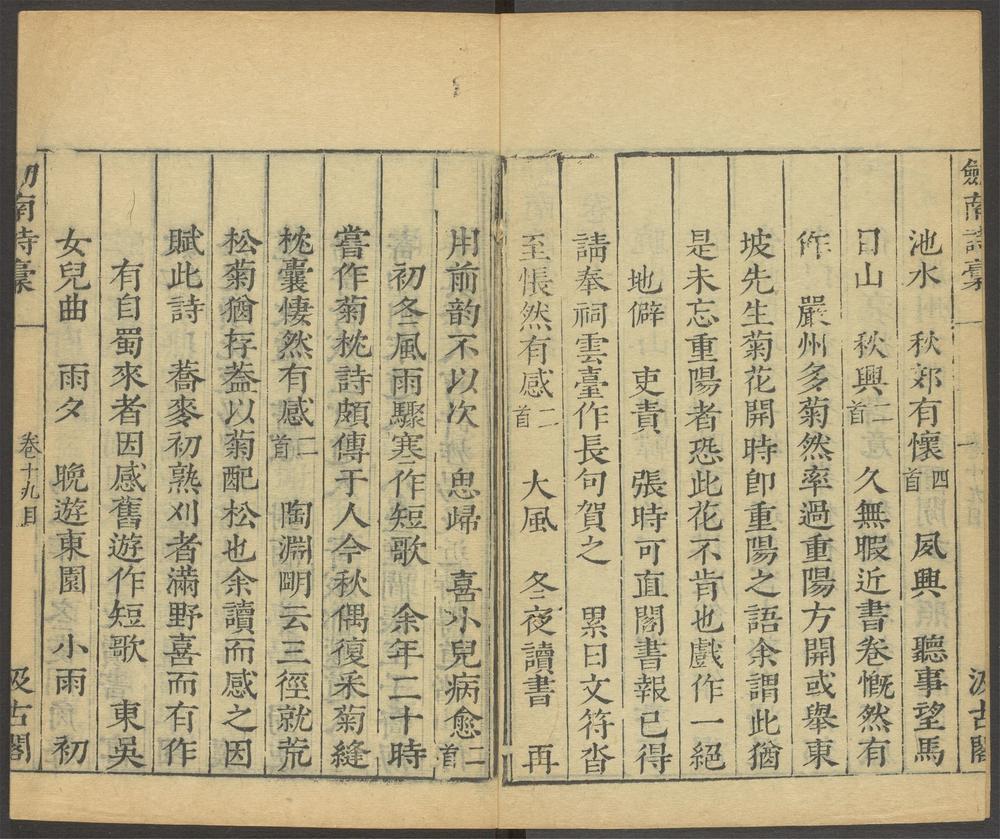 劍南詩稾
一
汲古閣
池水　秋郊有懷四首　夙興　聽事望馬
日山　秋興二首　久無暇近書卷慨然有
作　嚴州多菊然率過重陽方開或舉東
坡先生菊花開時卽重陽之語余謂此猶
是未忘重陽者恐此花不肯也戲作一絕
地僻　吏責　張時可直閣書報已得
請奉祠雲臺作長句賀之　累日文符沓
至悵然有感二首　大風　冬夜讀書　再
用前韵不以次　思歸　喜小兒病愈二首
初冬風雨驟寒作短歌　余年二十時
嘗作菊枕詩頗傳于人今秋偶復采菊縫
枕囊悽然有感二首　陶淵明云三徑就荒
松菊猶存葢以菊配松也余讀而感之因
賦此詩　蕎麥初熟刈者滿野喜而有作
有自蜀來者因感舊遊作短歌　東吳
女兒曲　雨夕　晚遊東園　小雨　初
劍南詩稾
卷十九目
汲古閣